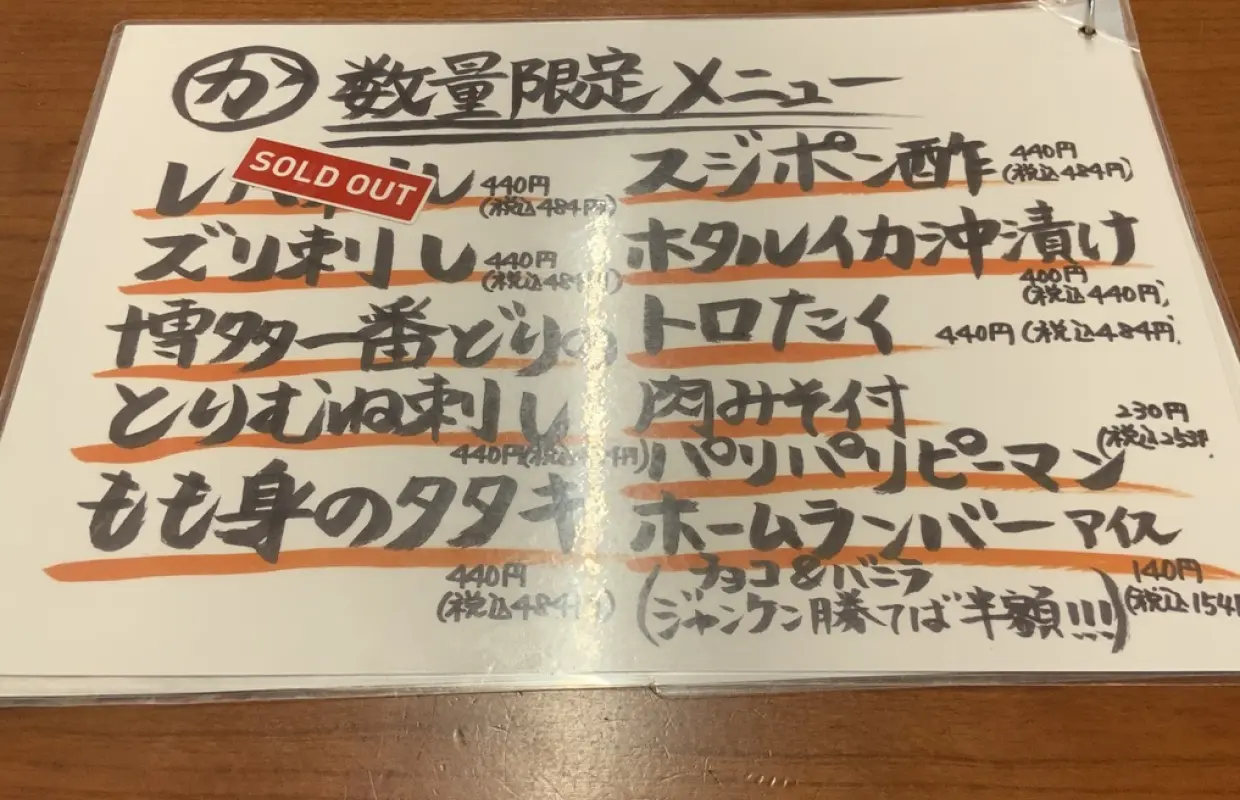 カ 数量限定メニュー
SOLD OUT
レ し 440円
(税込484円)
ズリ刺し 440円
(税込484円)
博多一番どりの
とりむね刺し
440円(税込484円)
もも身のタタキ
440円
(税込484円)
スジポン酢 440円
(税込484円)
ホタルイカ沖漬け
400円
(税込440円)
トロたく 440円(税込484円)
肉みそ付
パリパリピーマン
230円
(税込253円
ホームランバーアイス
チョコ&バニラ
(ジャンケン勝てば半額!!!)
140円
(税込154円